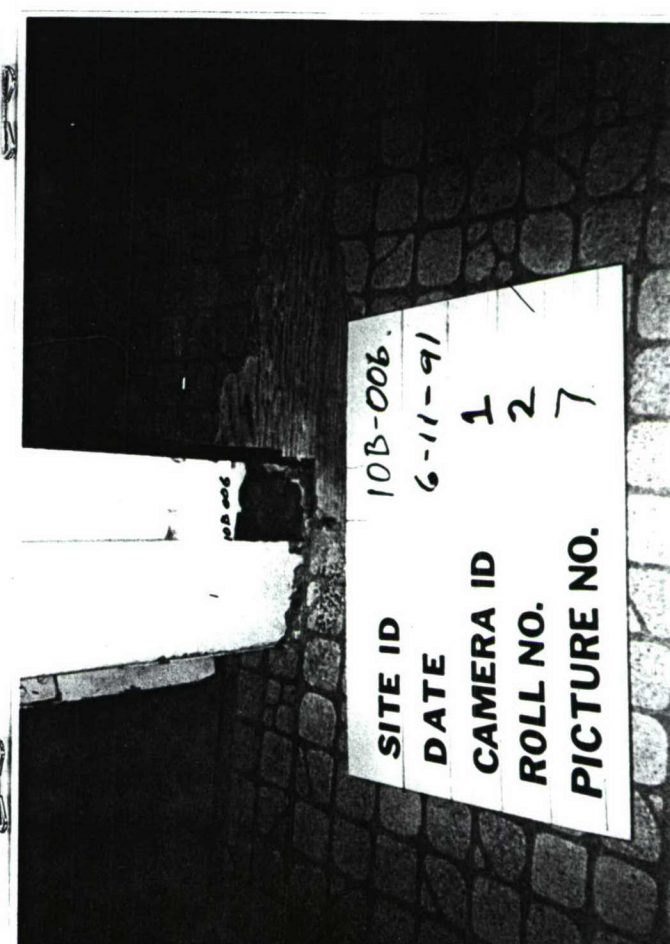 10B-006
SITE ID 10B-006.
DATE 6-11-91
CAMERA ID 1
ROLL NO. 2
PICTURE NO. 7